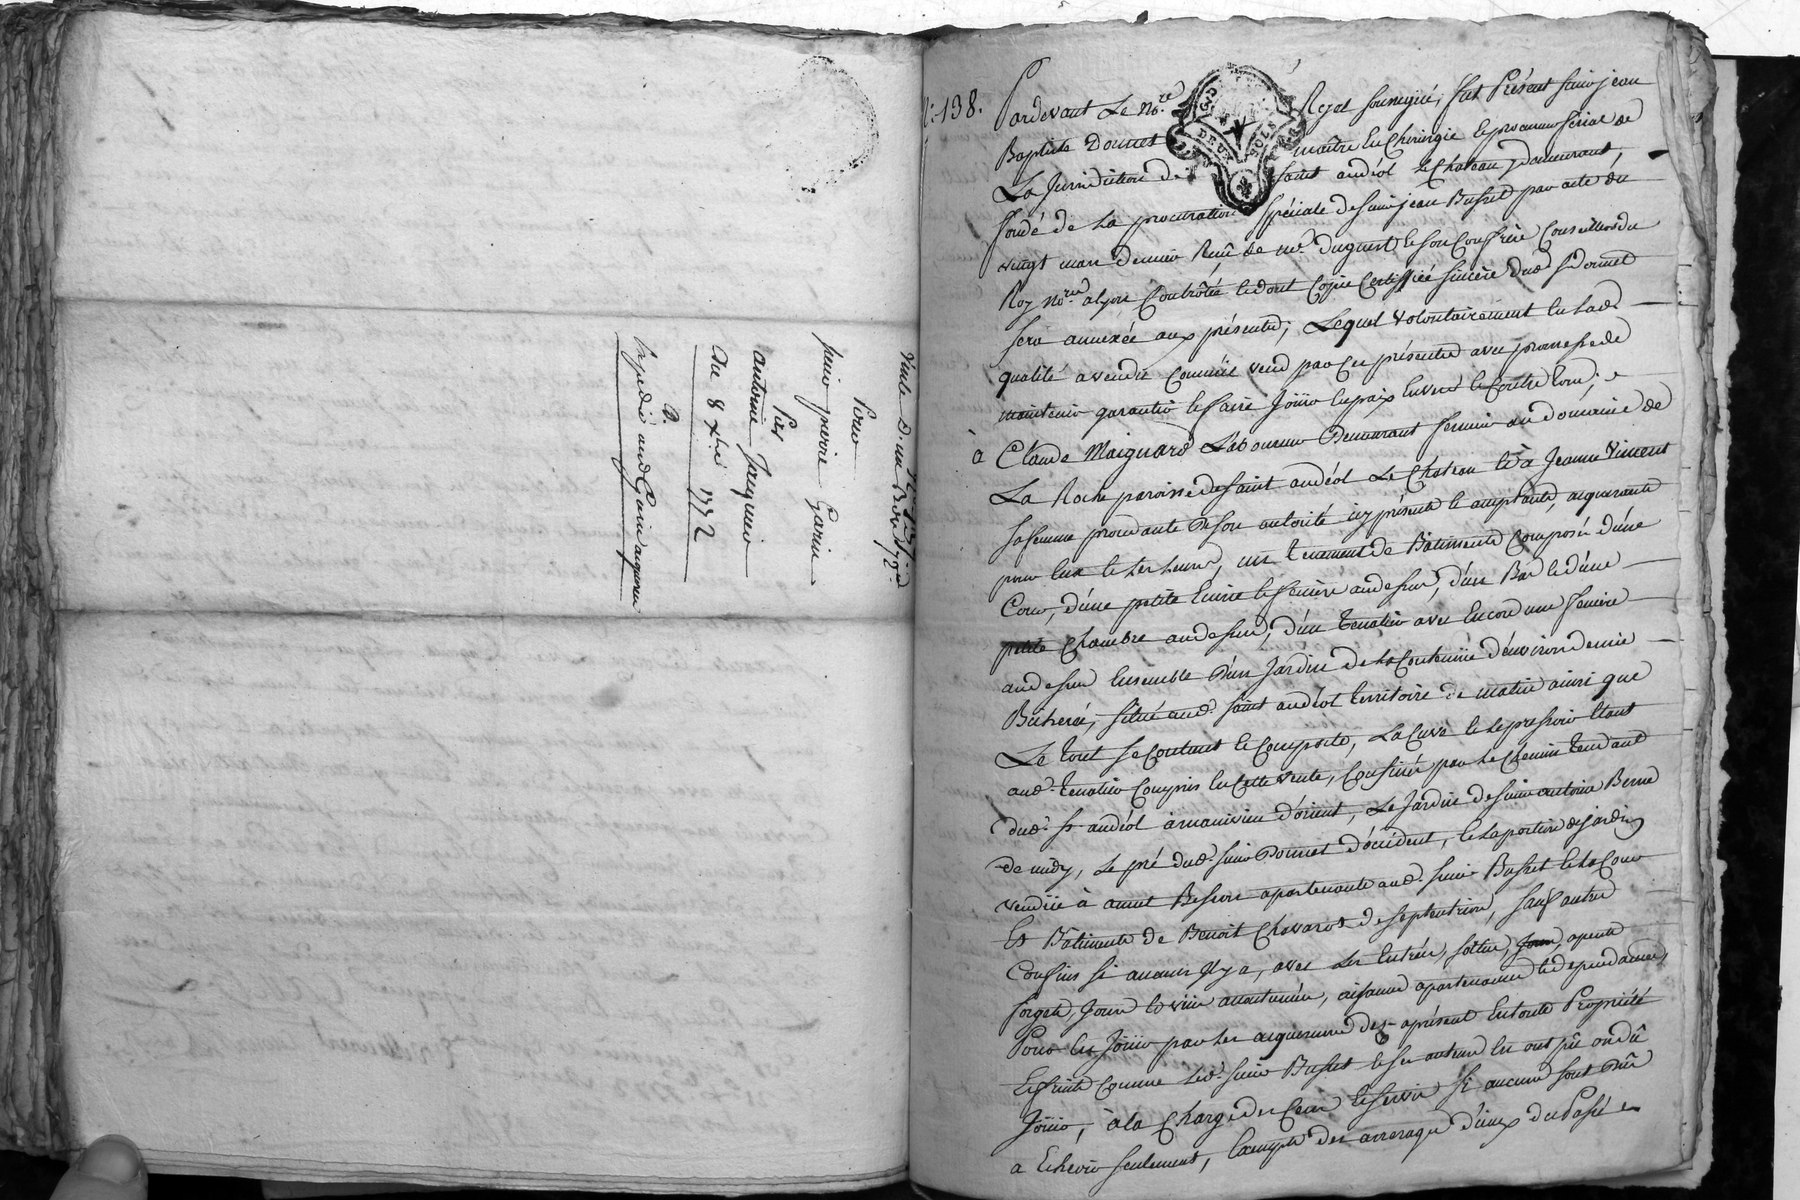 N.° 137
Vente d'un Bien de 72 #
Pour
sieur pierre Garin
Par
antoine Jacquemier
du 8 xbre 1772
Expedié aud. Garin acquereur
N.° 138.
Pardevant Le No.re Royal soussigné, fut Présent sieur jean
Baptiste Donnet maître En Chirurgie & procureur fiscal de
La Jurisdiction de saint andéol le Chateau y demeurant,
fondé de La procuration spéciale de sieur jean Bussret par acte du
vingt mars dernier Reçû de me. duguest & son Confrère Conseillers du
Roy No.res a lyon Controllée & dont Copie Certiffiée sincère dud. s. Donnet
sera annexée aux présentes; Lequel volontairement En lad.
qualité a vendu Comme il vend par Ces présentes avec promesse de
maintenir garantir & faire Joüir En paix Envers & Contre tous;
à Claude Maignard Laboureur Demeurant fermier au domaine de
La Roche paroisse de saint andéol Le Chateau & à Jeanne Vincent
sa femme procedante De son autorité icy présente & acceptante, acquerants
pour Eux & les leurs, un tenement de Bâtiments Composé d'une
Cour, d'une petite Ecurie & fenière au dessus, d'un Bas & d'une
petite Chambre au dessus, d'un Tenalier avec Encore une fenière
au dessus Ensemble D'un Jardin de La Contenüe d'environ demie
Bicherée, situé aud. saint andéol territoire de matin ainsi que
Le tout se Contient & Comporte, La Cuve & Le pressoir Etant
aud. Tenalier Compris En Cette vente, Confinés par Le Chemin tendant
dud. st. andéol à d'orient, Le Jardin de sieur antoine Berne
de midy, Le pré dud. sieur Donnet d'occident, & La portion de jardin
vendüe à Besson apartenante aud. sieur Bussret & La Cour
Et Bâtiments de Benoit Chavarot de septentrion, sauf autres
Confins si aucuns Il y a, avec Les Entrées, sorties, apents
forgets, Jours & vües accoutumées, aisances apartenances & dépendances,
Pour En Joüir par Les acquereurs dez-apresent En toute Propriété
& fruits Comme Led. sieur Bussret & ses auteurs En ont pû ou dû
Joüir, à la Charge des Cens & servis si aucuns sont dûs
a Echevoir seulement, Exempts des arrerages d'iceux du Passé &